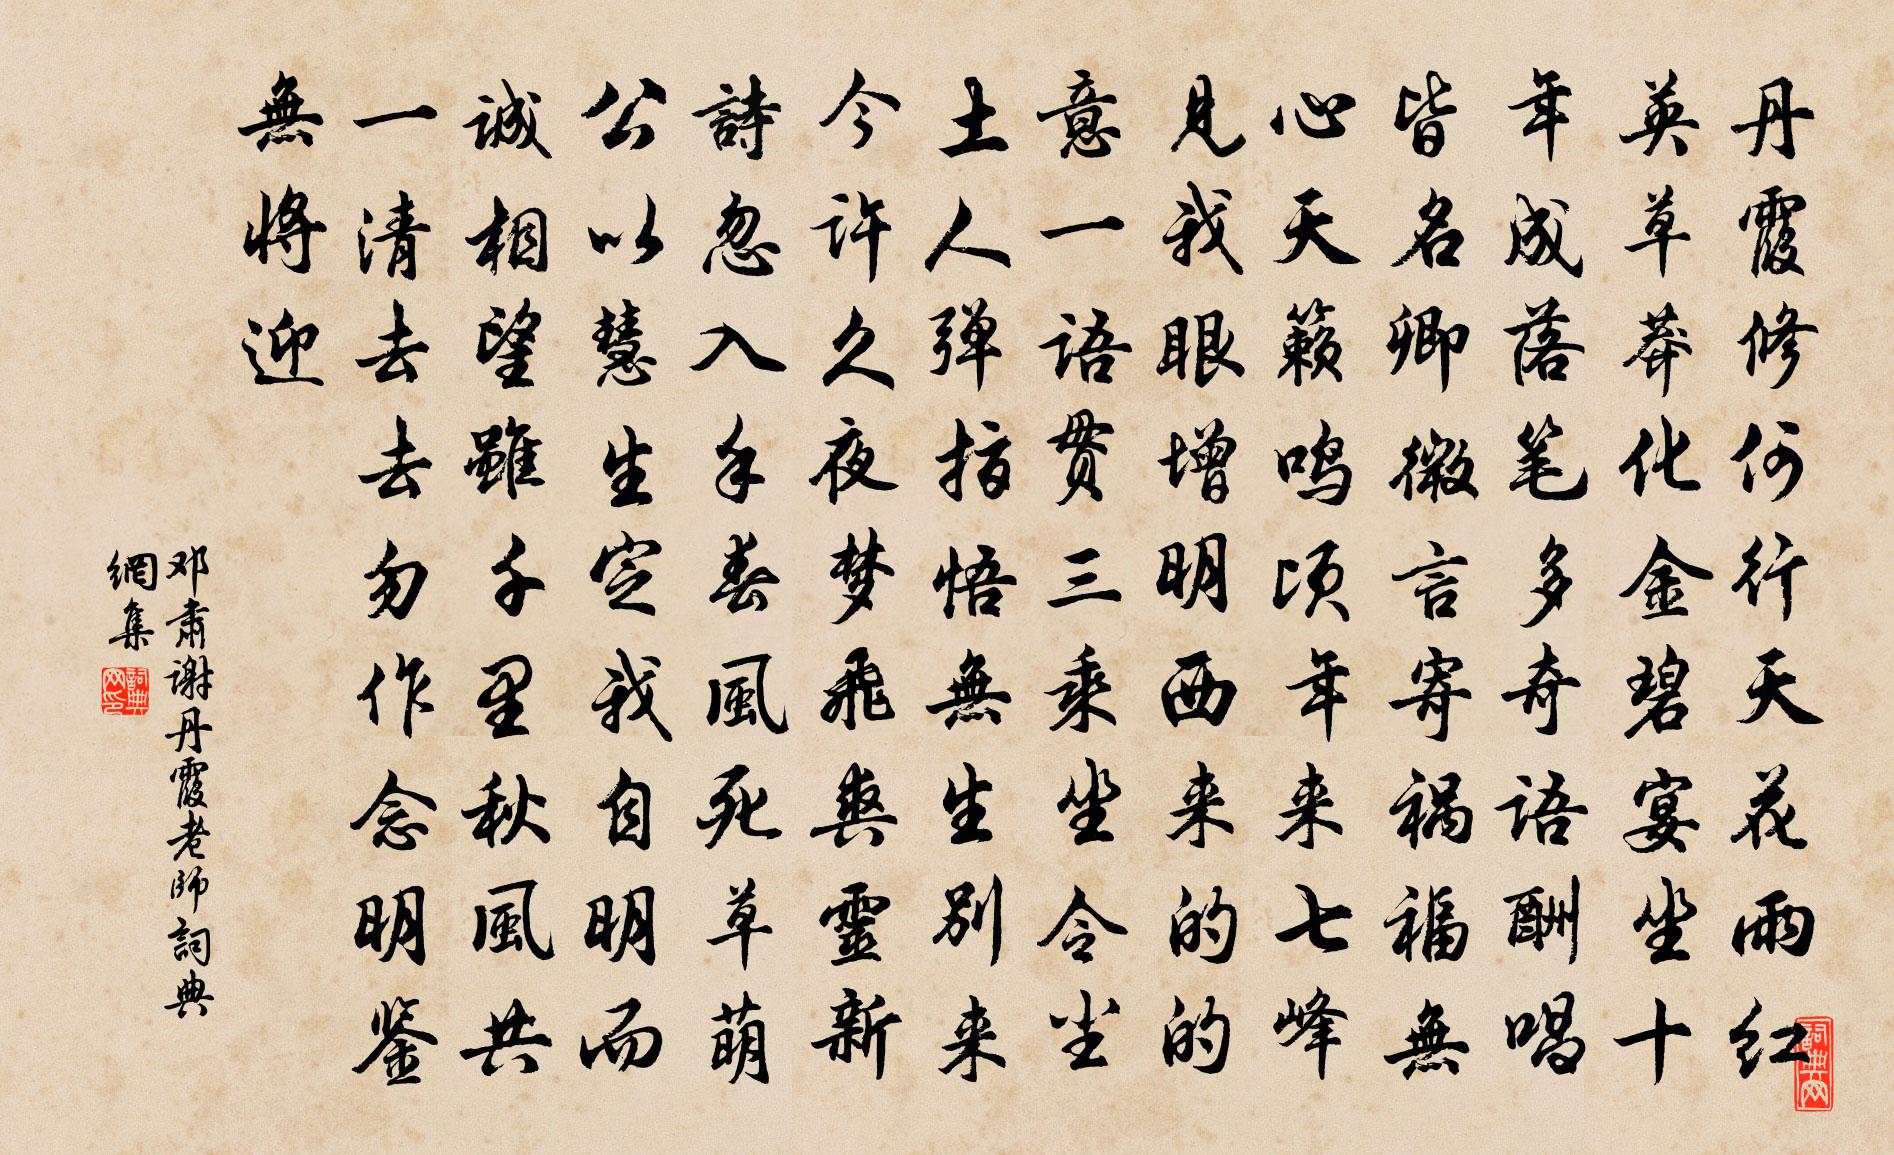 丹霞修何行天花雨红
英草莽化金碧宴坐十
年成落笔多奇语酬唱
皆名卿微言寄祸福無
心天籁鸣顷年来七峰
見我眼增明西来的的
意一语贯三乘坐令尘
土人弹指悟無生别来
今许久夜梦飛爽靈新
詩忽入手春風死草萌
公以慧生定我自明而
誠相望雖千里秋風共
一清去去勿作念明鉴
無将迎
邓肃谢丹霞老師詞典
網集
詞典网印
詞典网